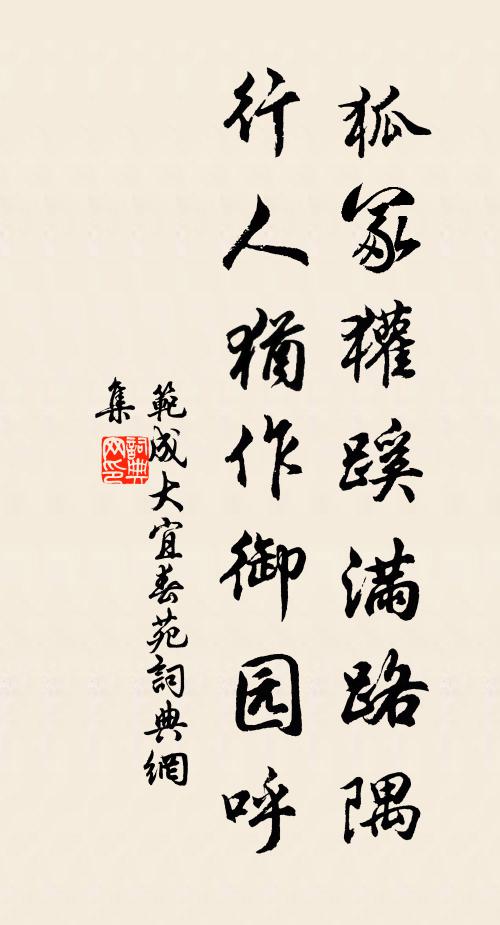 狐冢獾蹊满路隅
行人犹作御园呼
範成大宜春苑詞典網
集
詞典网印